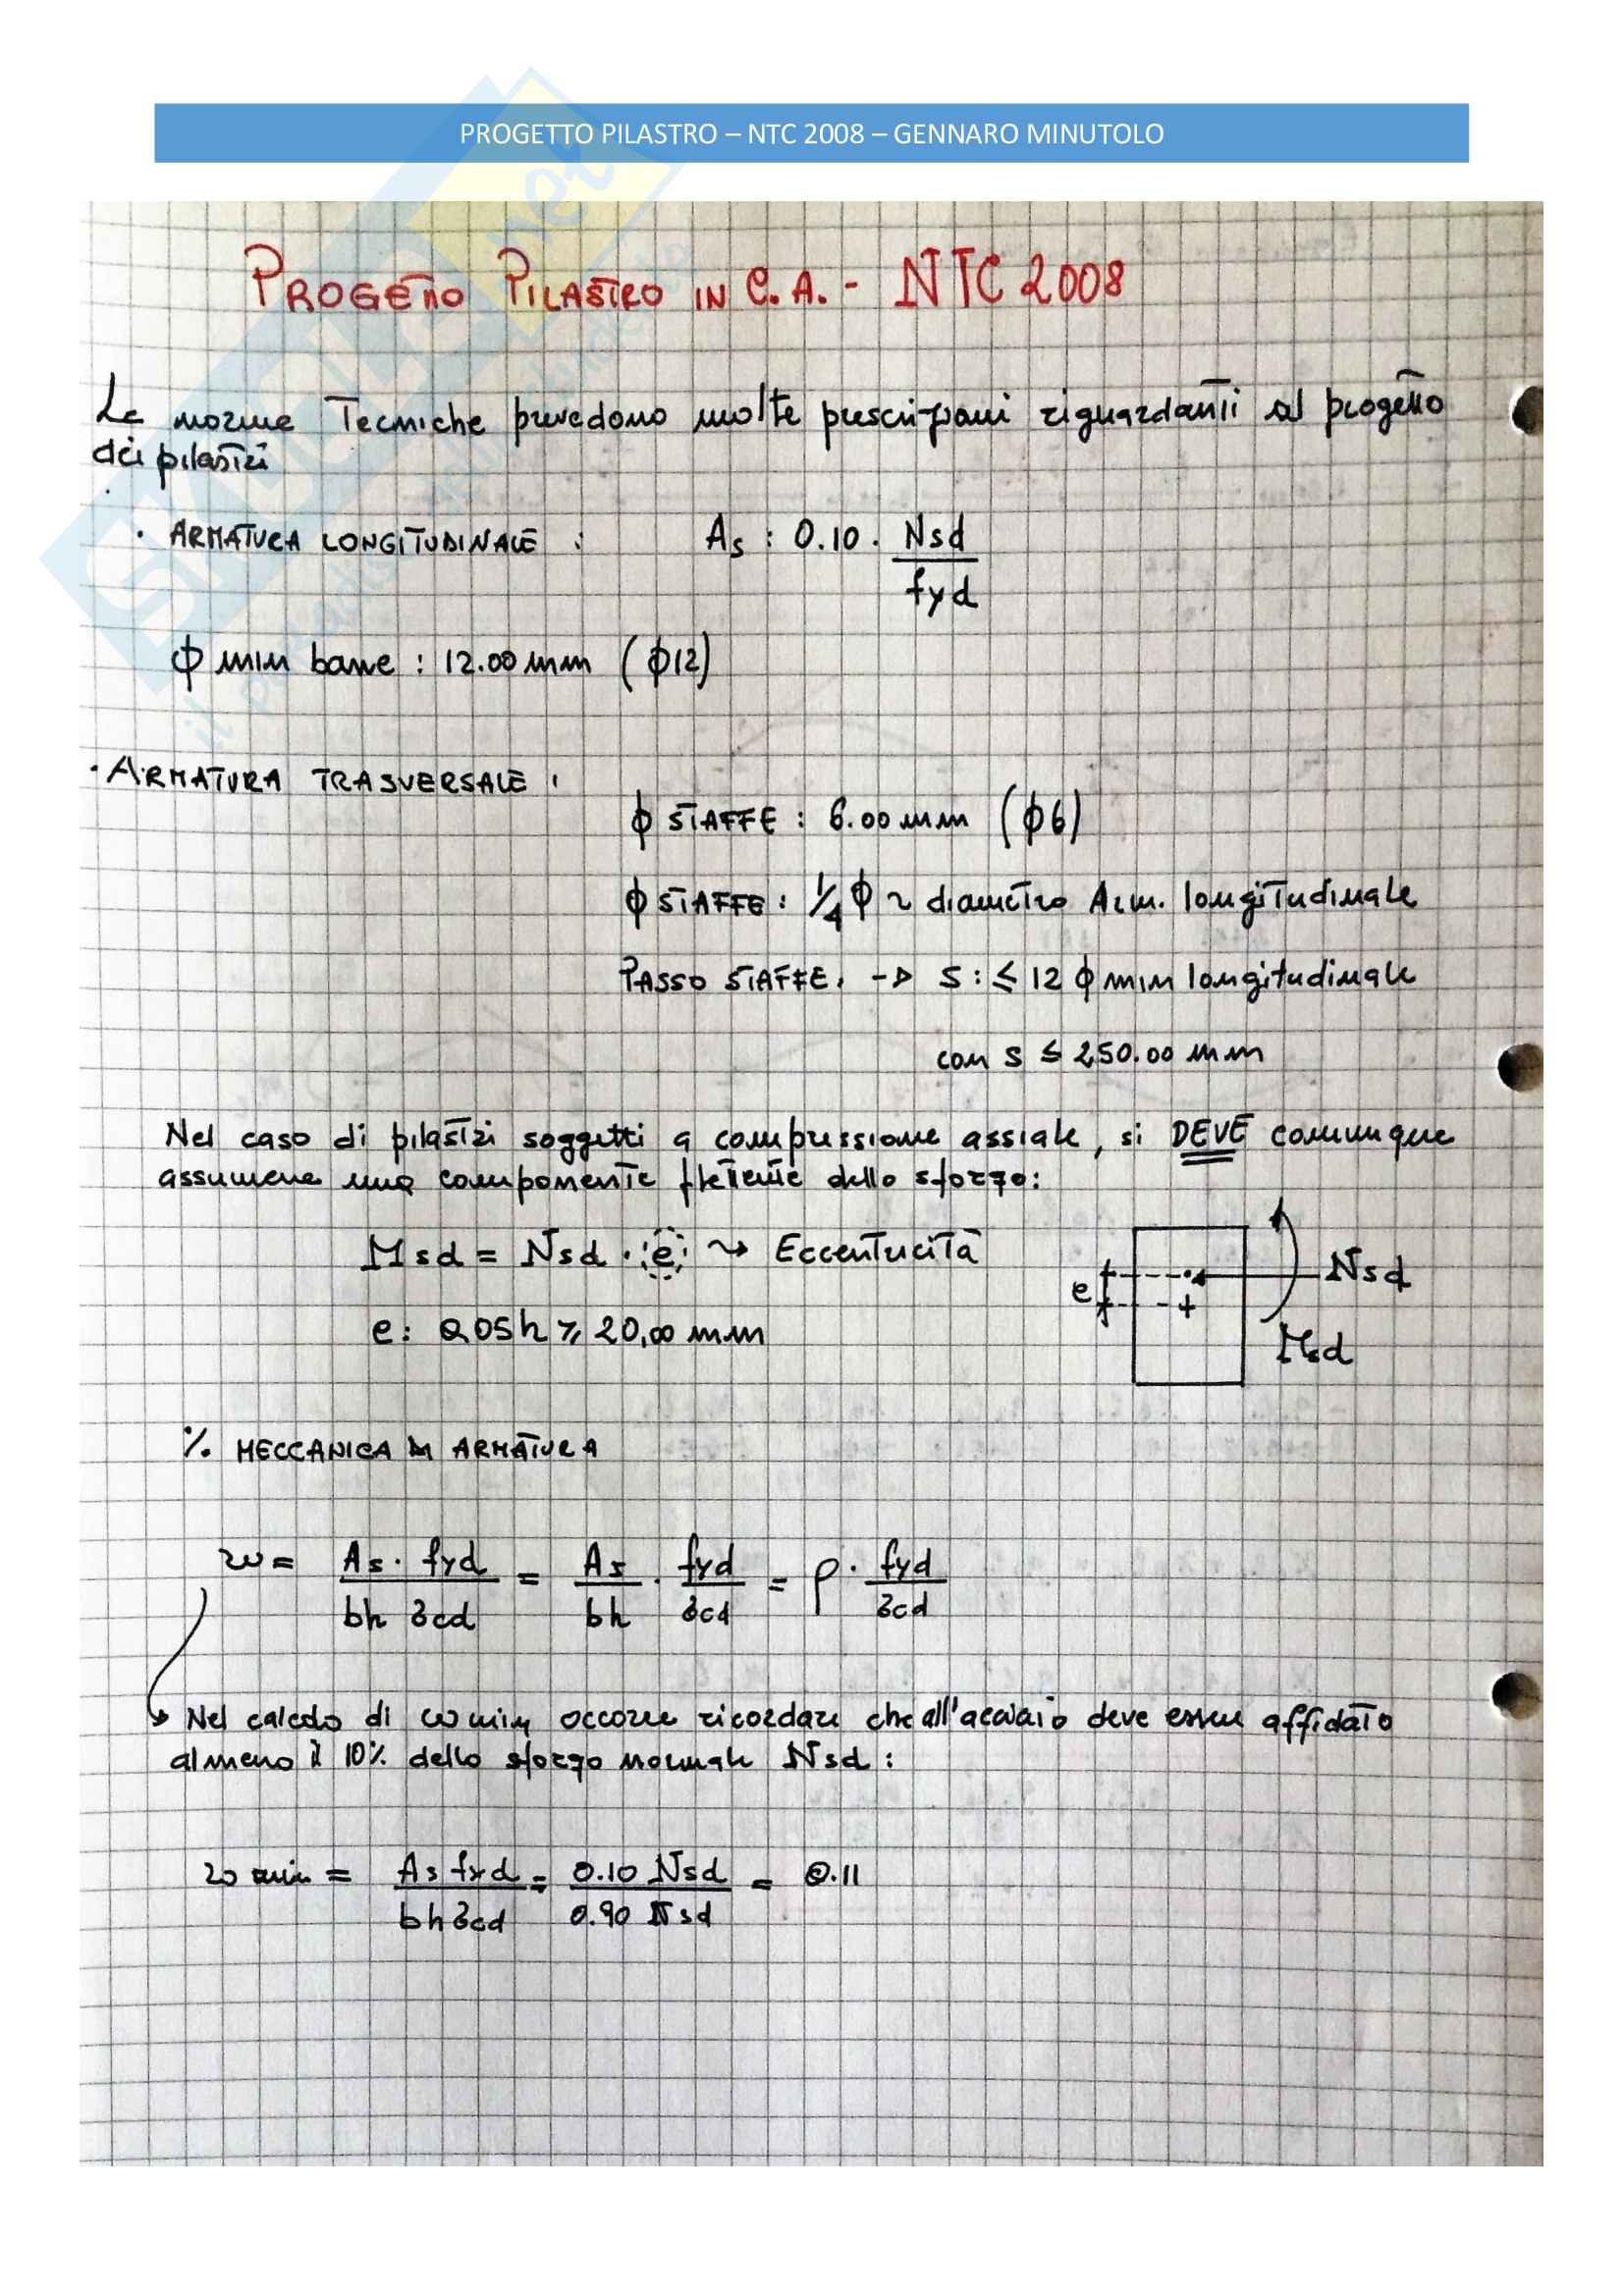 PROGETTO PILASTRO – NTC 2008 – GENNARO MINUTOLO
PROGETTO PILASTRO IN C.A. - NTC 2008
Le norme Tecniche prevedono molte prescrizioni riguardanti al progetto
dei pilastri
· ARMATURA LONGITUDINALE : As : 0.10 · Nsd / fyd
ϕ min barre : 12.00 mm (ϕ12)
· ARMATURA TRASVERSALE :
ϕ STAFFE : 6.00 mm (ϕ6)
ϕ STAFFE : 1/4 ϕ ~ diametro Arm. longitudinale
PASSO STAFFE. -> s : ≤ 12 ϕ min longitudinale
con s ≤ 250.00 mm
Nel caso di pilastri soggetti a compressione assiale, si DEVE comunque
assumere una componente flettente dello sforzo:
Msd = Nsd · e ⤳ Eccentricità
e: 0.05h ≥ 20,00 mm
e
Nsd
Msd
% MECCANICA DI ARMATURA
ω = As · fyd / bh fcd = As / bh · fyd / fcd = ρ · fyd / fcd
↳ Nel calcolo di ω min occorre ricordare che all'acciaio deve essere affidato
almeno il 10% dello sforzo normale Nsd :
ω min = As fyd / bh fcd = 0.10 Nsd / 0.90 Nsd = 0.11
SKUOLA.net